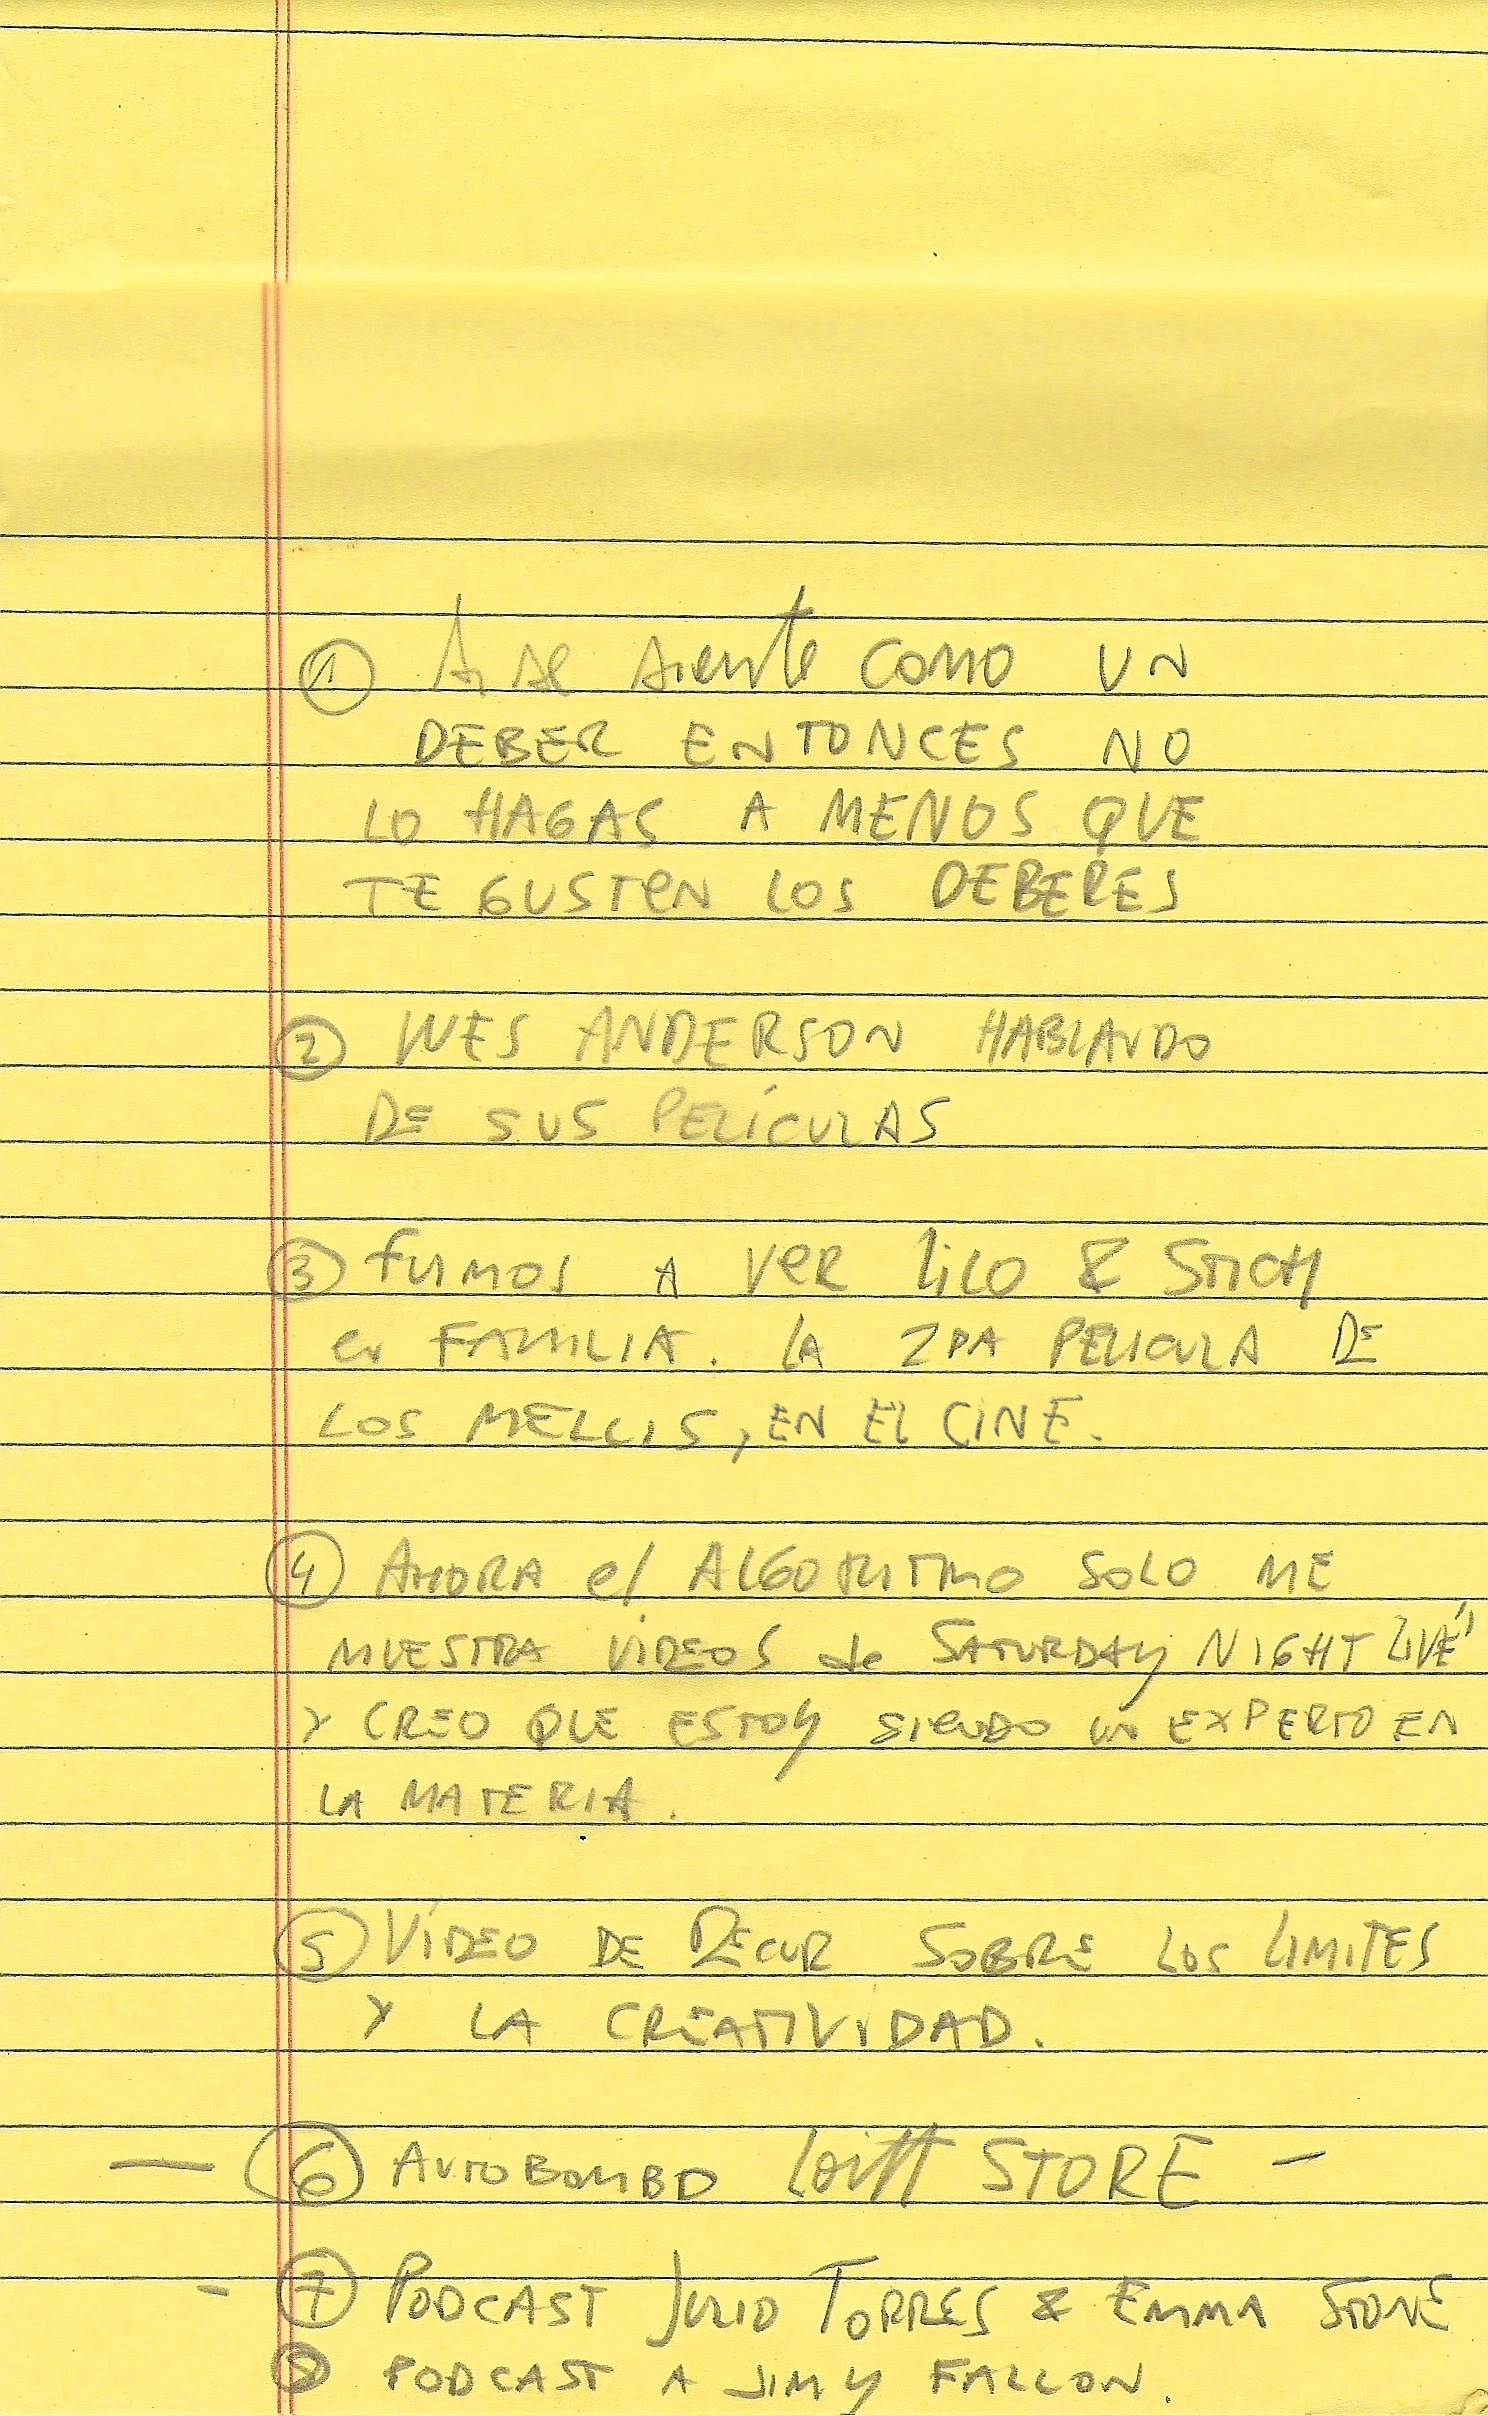 ① Si se siente como UN
DEBER ENTONCES NO
LO HAGAS A MENOS QUE
TE GUSTEN LOS DEBERES
② WES ANDERSON HABLANDO
DE SUS PELÍCULAS
③ FUIMOS A VER LILO & STICH
en FAMILIA. LA 2DA PELICULA DE
LOS MELLIS, EN EL CINE.
④ AHORA el ALGORITMO SOLO ME
MUESTRA VIDEOS de SATURDAY NIGHT LIVE"
Y CREO QUE ESTOY SIENDO UN EXPERTO EN
LA MATERIA.
⑤ VÍDEO DE DECUR SOBRE LOS LIMITES
Y LA CREATIVIDAD.
— ⑥ AUTOBOMBO STORE —
- ⑦ PODCAST JULIO TORRES & EMMA STONE
⑧ PODCAST A JIMY FALLON.